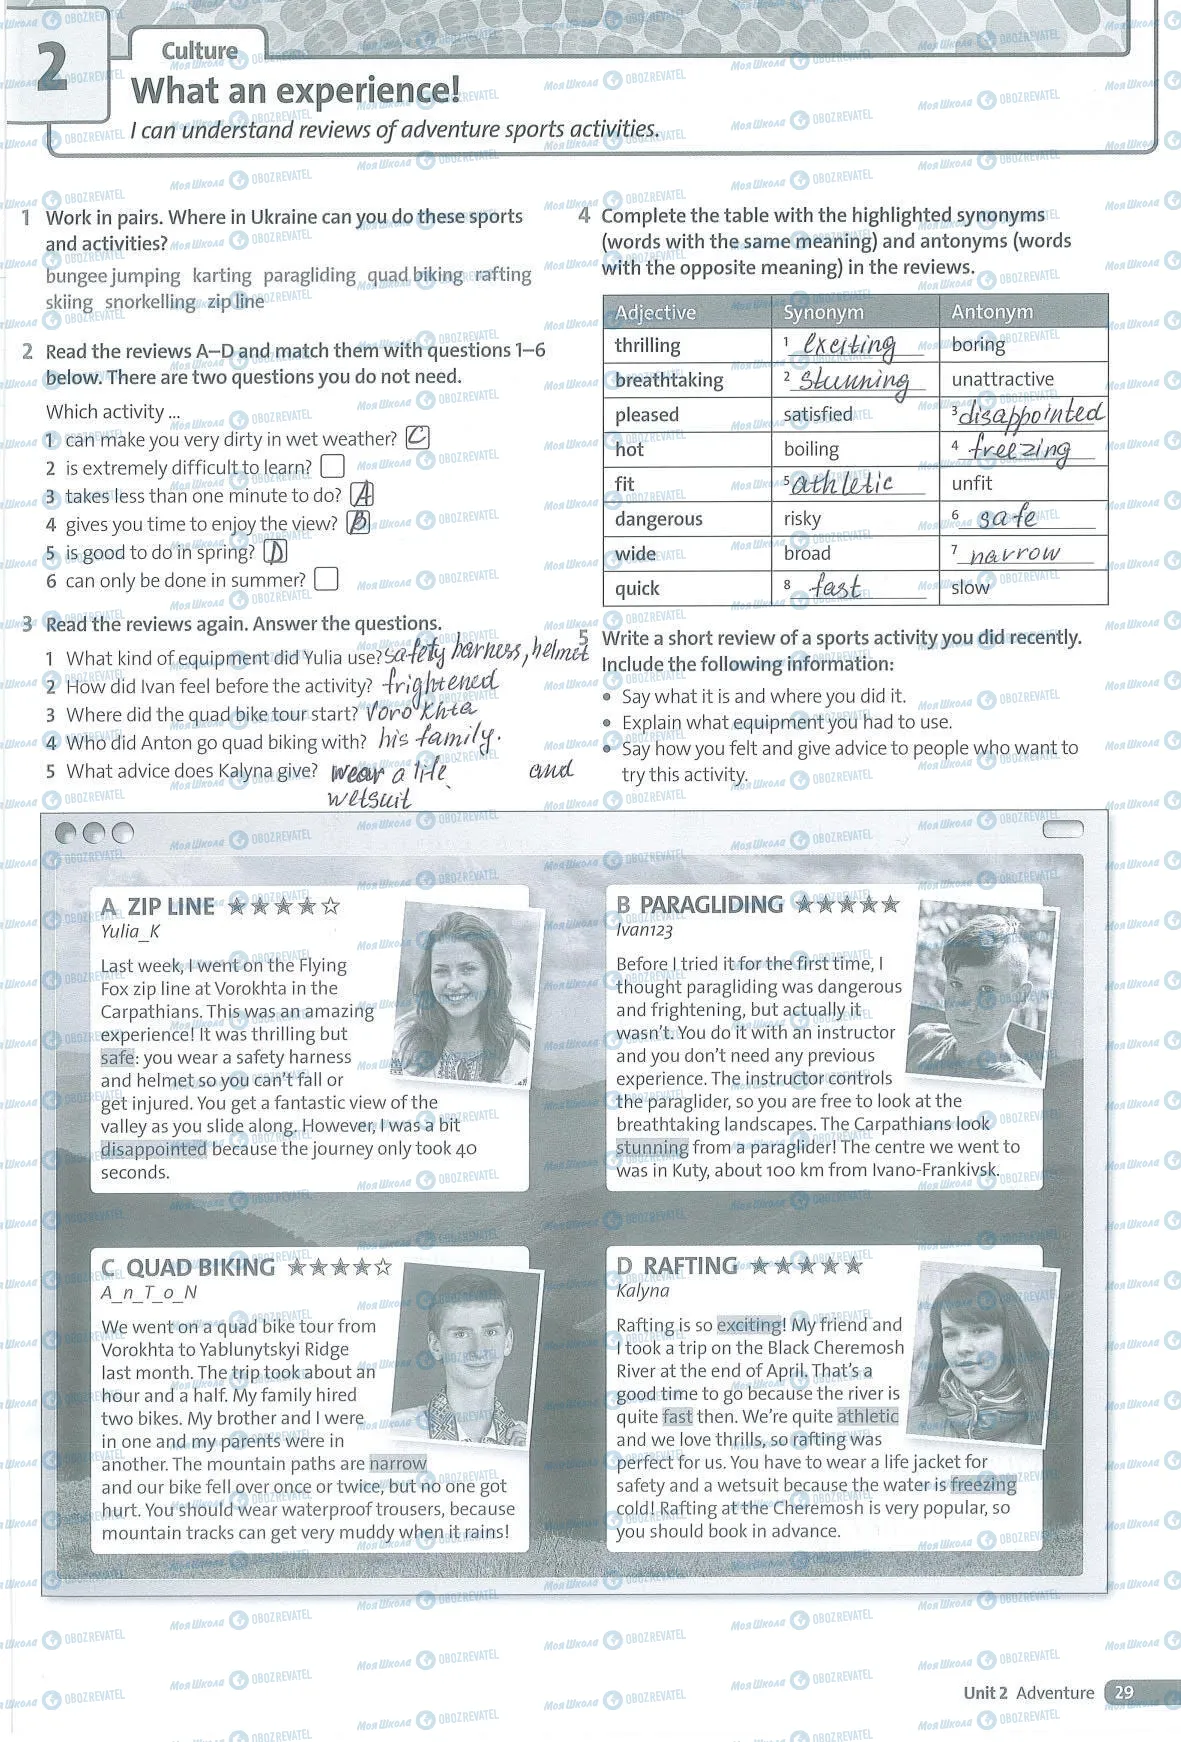 2
Culture
What an experience!
I can understand reviews of adventure sports activities.
1 Work in pairs. Where in Ukraine can you do these sports
and activities?
bungee jumping karting paragliding quad biking rafting
skiing snorkelling zip line
2 Read the reviews A–D and match them with questions 1–6
below. There are two questions you do not need.
Which activity ...
1 can make you very dirty in wet weather? C
2 is extremely difficult to learn?
3 takes less than one minute to do? A
4 gives you time to enjoy the view? B
5 is good to do in spring? D
6 can only be done in summer?
3 Read the reviews again. Answer the questions.
1 What kind of equipment did Yulia use? safety harness, helmet
2 How did Ivan feel before the activity? frightened
3 Where did the quad bike tour start? Vorokhta
4 Who did Anton go quad biking with? his family.
5 What advice does Kalyna give? wear a life and
wetsuit
4 Complete the table with the highlighted synonyms
(words with the same meaning) and antonyms (words
with the opposite meaning) in the reviews.
Adjective Synonym Antonym
thrilling 1 exciting boring
breathtaking 2 stunning unattractive
pleased satisfied 3 disappointed
hot boiling 4 freezing
fit 5 athletic unfit
dangerous risky 6 safe
wide broad 7 narrow
quick 8 fast slow
5 Write a short review of a sports activity you did recently.
Include the following information:
• Say what it is and where you did it.
• Explain what equipment you had to use.
• Say how you felt and give advice to people who want to
try this activity.
A ZIP LINE
Yulia_K
Last week, I went on the Flying
Fox zip line at Vorokhta in the
Carpathians. This was an amazing
experience! It was thrilling but
safe: you wear a safety harness
and helmet so you can't fall or
get injured. You get a fantastic view of the
valley as you slide along. However, I was a bit
disappointed because the journey only took 40
seconds.
B PARAGLIDING
Ivan123
Before I tried it for the first time, I
thought paragliding was dangerous
and frightening, but actually it
wasn't. You do it with an instructor
and you don't need any previous
experience. The instructor controls
the paraglider, so you are free to look at the
breathtaking landscapes. The Carpathians look
stunning from a paraglider! The centre we went to
was in Kuty, about 100 km from Ivano-Frankivsk.
C QUAD BIKING
A_n_T_o_N
We went on a quad bike tour from
Vorokhta to Yablunytskyi Ridge
last month. The trip took about an
hour and a half. My family hired
two bikes. My brother and I were
in one and my parents were in
another. The mountain paths are narrow
and our bike fell over once or twice, but no one got
hurt. You should wear waterproof trousers, because
mountain tracks can get very muddy when it rains!
D RAFTING
Kalyna
Rafting is so exciting! My friend and
I took a trip on the Black Cheremosh
River at the end of April. That's a
good time to go because the river is
quite fast then. We're quite athletic
and we love thrills, so rafting was
perfect for us. You have to wear a life jacket for
safety and a wetsuit because the water is freezing
cold! Rafting at the Cheremosh is very popular, so
you should book in advance.
Unit 2 Adventure 29
МояШкола OBOZREVATEL